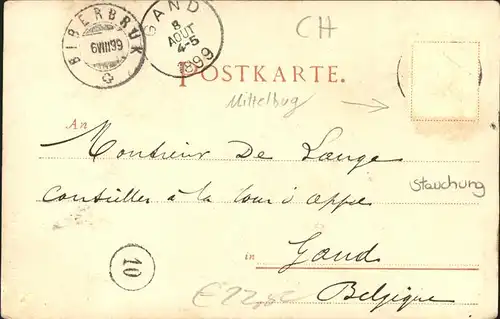 BIBERBRUK
6 VIII 99
GAND
8
AOUT
4-5
1899
CH
POSTKARTE.
Mittelbug
An
Monsieur De Lange
Conseiller à la Cour d'appel
Stauchung
in Gand
10
Belgique